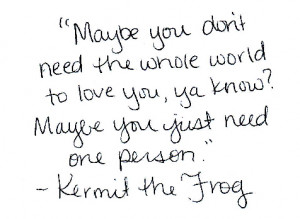 "Maybe you don't
need the whole world
to love you, ya know?
Maybe you just need
one person."
- Kermit the Frog